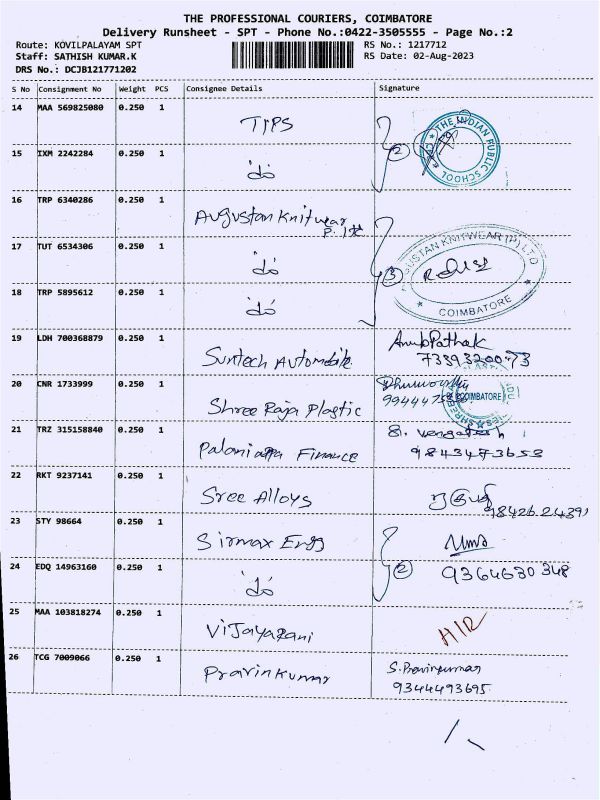 THE PROFESSIONAL COURIERS, COIMBATORE
Delivery Runsheet - SPT - Phone No.:0422-3505555 - Page No.:2
Route: KOVILPALAYAM SPT RS No.: 1217712
Staff: SATHISH KUMAR.K RS Date: 02-Aug-2023
DRS No.: DCJB121771202
S No Consignment No Weight PCS Consignee Details Signature
14 MAA 569825080 0.250 1 TIPS
2 THE INDIAN PUBLIC SCHOOL
15 IXM 2242284 0.250 1 'do
16 TRP 6340286 0.250 1 Augustan Knitwear
P. Ltd
17 TUT 6534306 0.250 1 'do
3 AUGUSTAN KNITWEAR (P) LTD
COIMBATORE
18 TRP 5895612 0.250 1 'do
19 LDH 700368879 0.250 1 Suntech Automobile AnubPathak
7339320073
20 CNR 1733999 0.250 1 Shree Raja Plastic
COIMBATORE
21 TRZ 315158840 0.250 1 Palaniappa Finance S. Vengatesh
9843473653
22 RKT 9237141 0.250 1 Sree Alloys
9842624391
23 STY 98664 0.250 1 Sirmax Engg Uma
24 EDQ 14963160 0.250 1 'do 2 9364630348
25 MAA 103818274 0.250 1 Vijayarani H/R
26 TCG 7009066 0.250 1 Pravinkumar S. Pravinkumar
9344493695